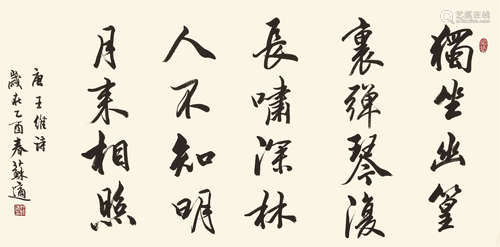 獨坐幽篁
裏彈琴復
長嘯深林
人不知明
月来相照
唐王維詩
歲在乙酉春蘇適